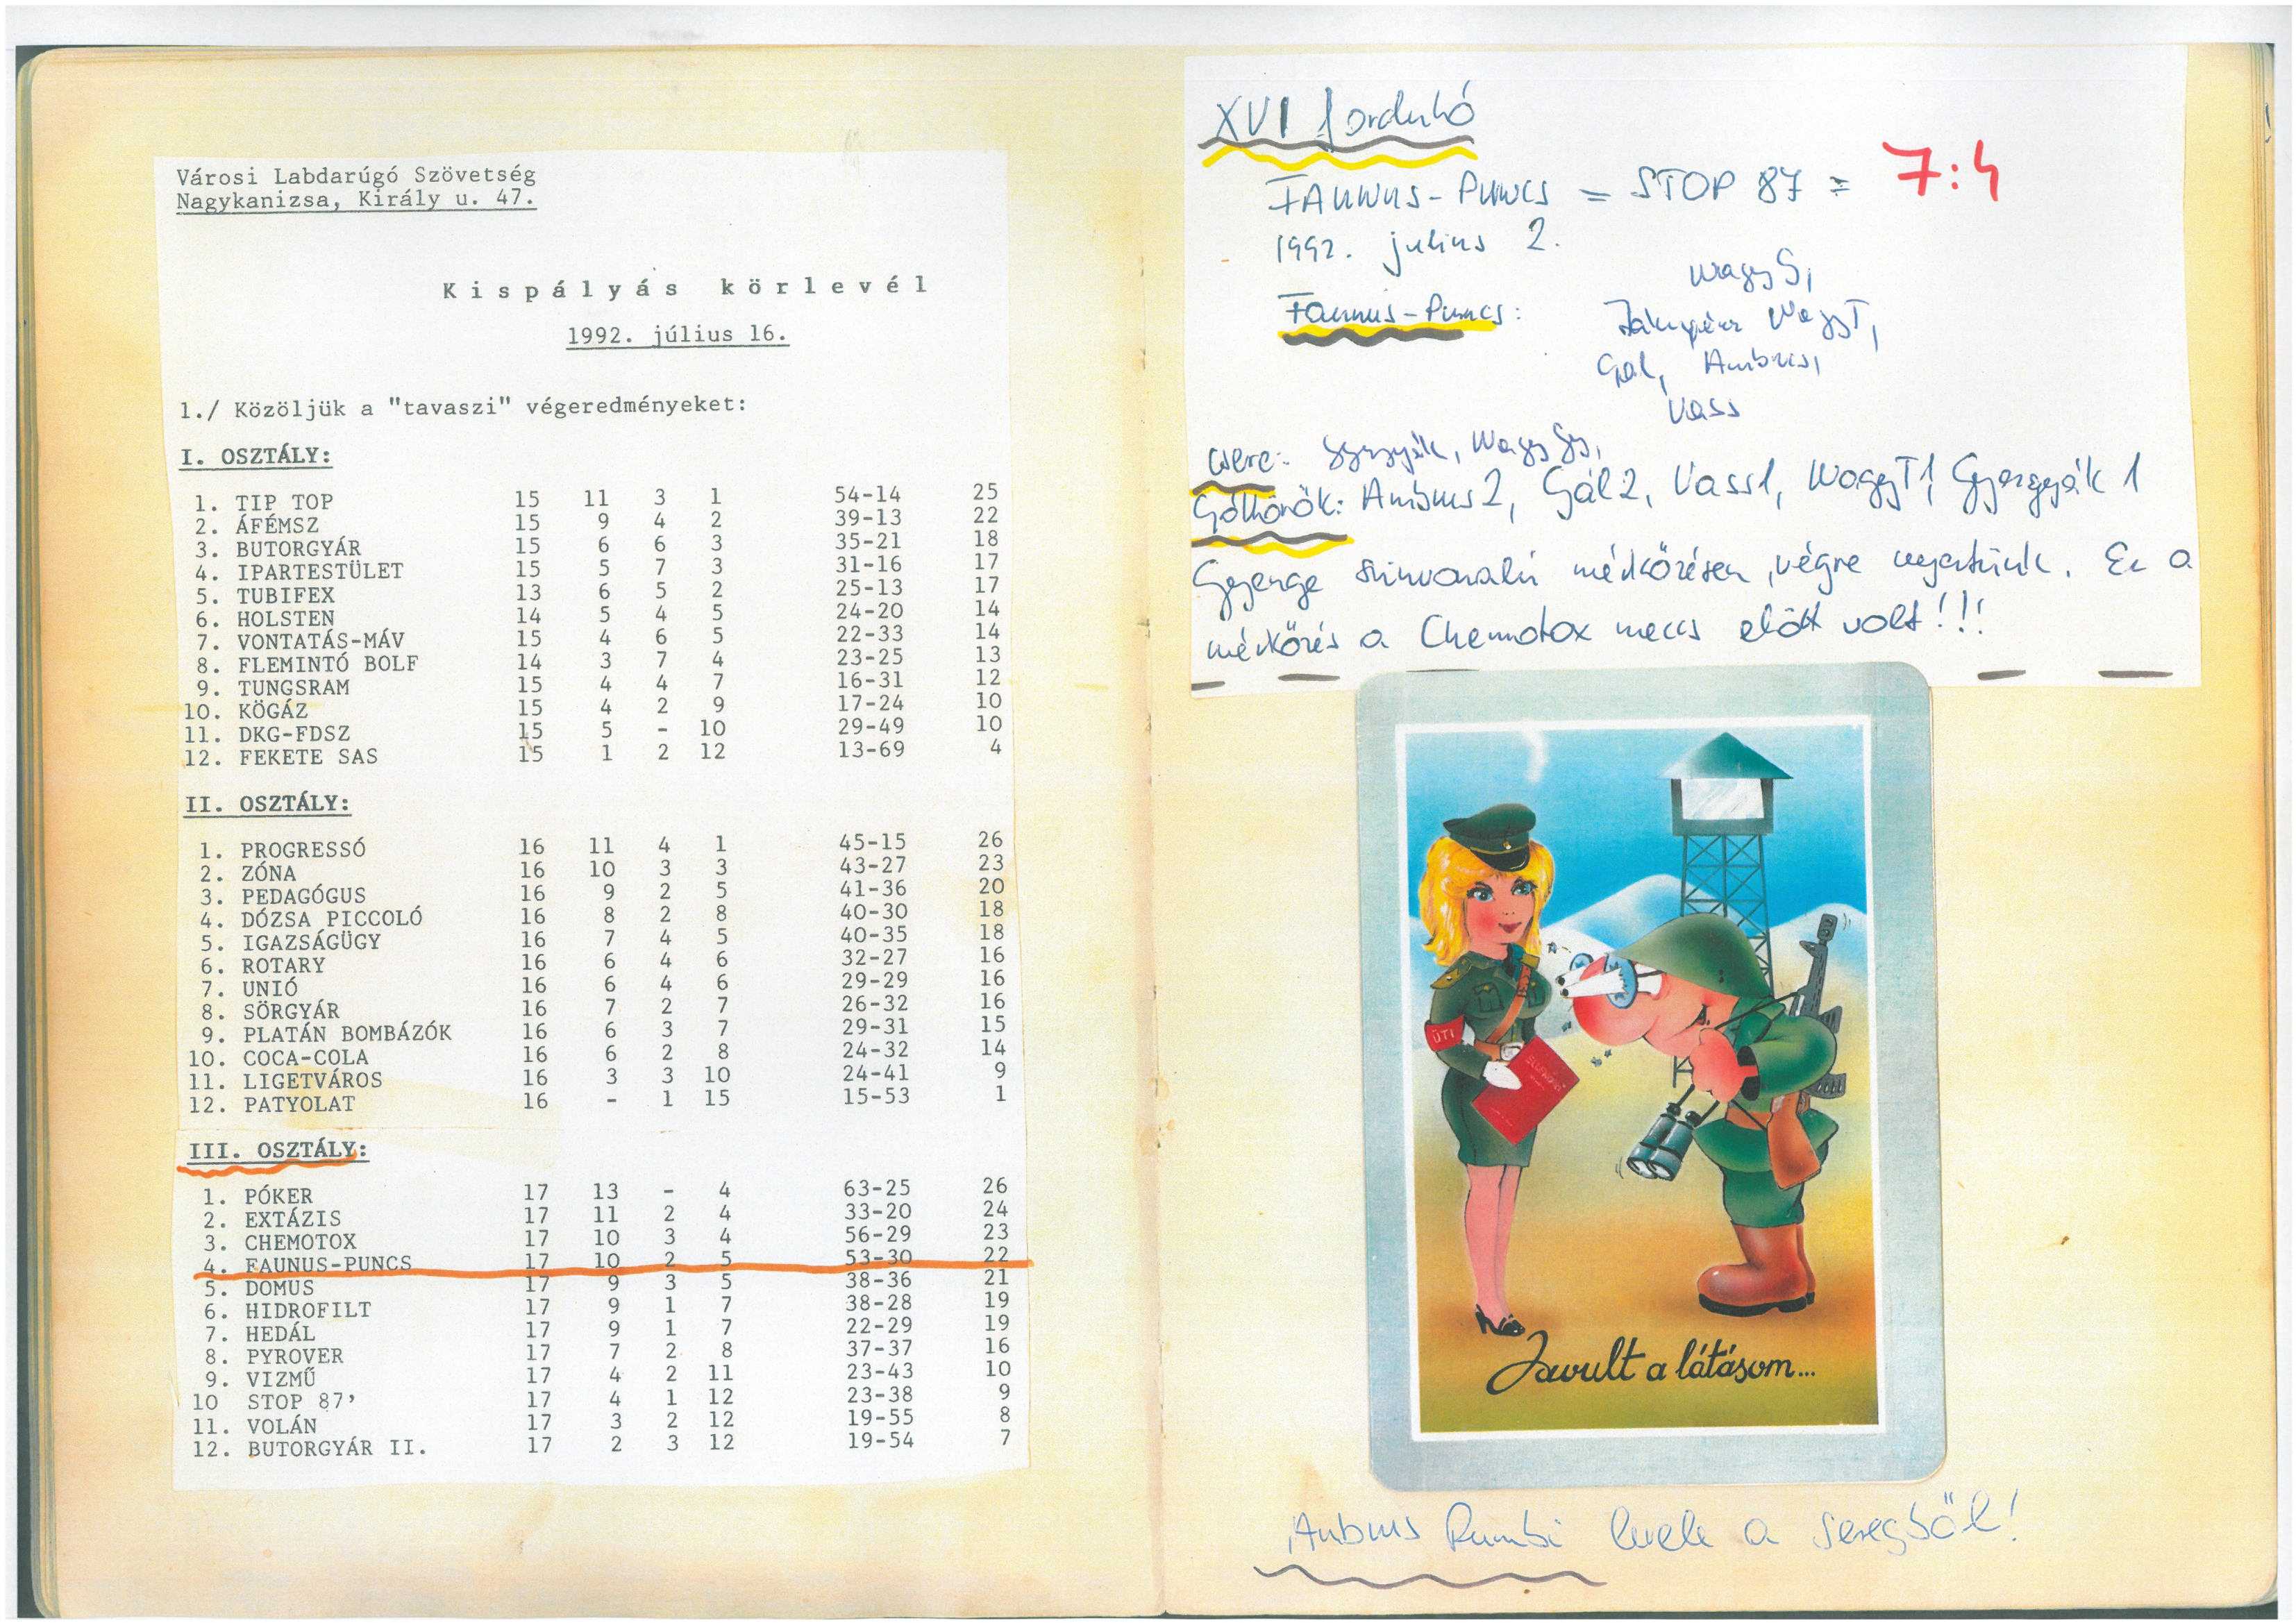 Városi Labdarúgó Szövetség
Nagykanizsa, Király u. 47.
Kispályás körlevél
1992. július 16.
1./ Közöljük a "tavaszi" végeredményeket:
I. OSZTÁLY:
1. TIP TOP 15 11 3 1 54-14 25
2. ÁFÉMSZ 15 9 4 2 39-13 22
3. BUTORGYÁR 15 6 6 3 35-21 18
4. IPARTESTÜLET 15 5 7 3 31-16 17
5. TUBIFEX 13 6 5 2 25-13 17
6. HOLSTEN 14 5 4 5 24-20 14
7. VONTATÁS-MÁV 15 4 6 5 22-33 14
8. FLEMINTÓ BOLF 14 3 7 4 23-25 13
9. TUNGSRAM 15 4 4 7 16-31 12
10. KÖGÁZ 15 4 2 9 17-24 10
11. DKG-FDSZ 15 5 - 10 29-49 10
12. FEKETE SAS 15 1 2 12 13-69 4
II. OSZTÁLY:
1. PROGRESSÓ 16 11 4 1 45-15 26
2. ZÓNA 16 10 3 3 43-27 23
3. PEDAGÓGUS 16 9 2 5 41-36 20
4. DÓZSA PICCOLÓ 16 8 2 8 40-30 18
5. IGAZSÁGÜGY 16 7 4 5 40-35 18
6. ROTARY 16 6 4 6 32-27 16
7. UNIÓ 16 6 4 6 29-29 16
8. SÖRGYÁR 16 7 2 7 26-32 16
9. PLATÁN BOMBÁZÓK 16 6 3 7 29-31 15
10. COCA-COLA 16 6 2 8 24-32 14
11. LIGETVÁROS 16 3 3 10 24-41 9
12. PATYOLAT 16 - 1 15 15-53 1
III. OSZTÁLY:
1. PÓKER 17 13 - 4 63-25 26
2. EXTÁZIS 17 11 2 4 33-20 24
3. CHEMOTOX 17 10 3 4 56-29 23
4. FAUNUS-PUNCS 17 10 2 5 53-30 22
5. DOMUS 17 9 3 5 38-36 21
6. HIDROFILT 17 9 1 7 38-28 19
7. HEDÁL 17 9 1 7 22-29 19
8. PYROVER 17 7 2 8 37-37 16
9. VIZMŰ 17 4 2 11 23-43 10
10 STOP 87' 17 4 1 12 23-38 9
11. VOLÁN 17 3 2 12 19-55 8
12. BUTORGYÁR II. 17 2 3 12 19-54 7
XVI forduló
FAUNUS-PUNCS = STOP 87 = 7:4
1992. julius 2.
Nagy S,
Faunus-Puncs: Nagy T,
Gál, Ambrus,
Vass
csere: Gyergyák, Nagy Gy,
Góllövők: Ambrus 2, Gál 2, Vass 1, Nagy T 1, Gyergyák 1
Gyenge szinvonalú mérkőzésen, végre nyertünk. Ez a
mérkőzés a Chemotox meccs előtt volt!!!
ÜTI
Javult a látásom...
Ambrus levele a seregből!